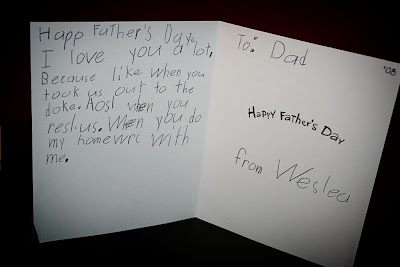 Happ Father's Day.
I love you a lot,
Because like when you
took us out to the
doke. Aosl when you
rest.us. When you do
my homewrc with
me.
To: Dad
'08
Happy Father's Day
from Weslea